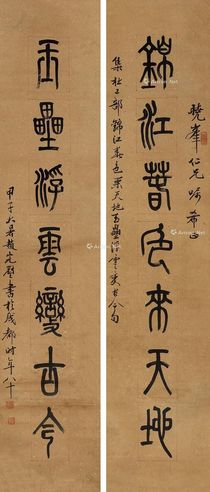 曉峯仁兄囑 希正
錦江春色來天地
集杜工部錦江春色來天地玉壘浮雲變古今句
玉壘浮雲變古今
甲子大暑趙完璧書於成都时年八十